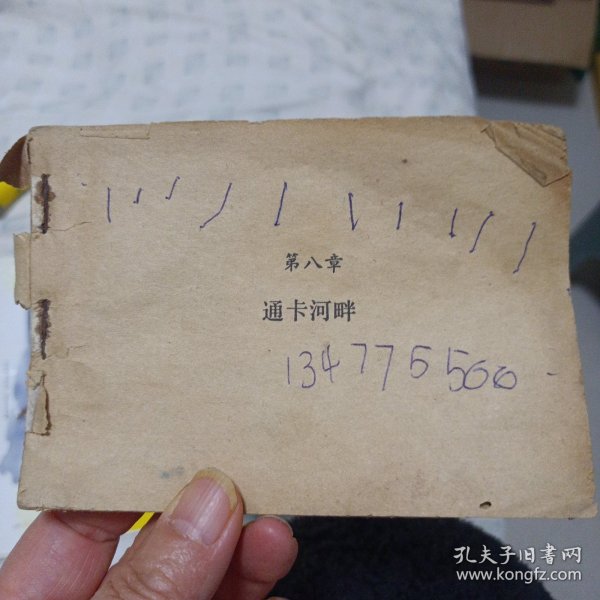 第八章
通卡河畔
134775500
孔夫子旧书网
www.kongfz.com